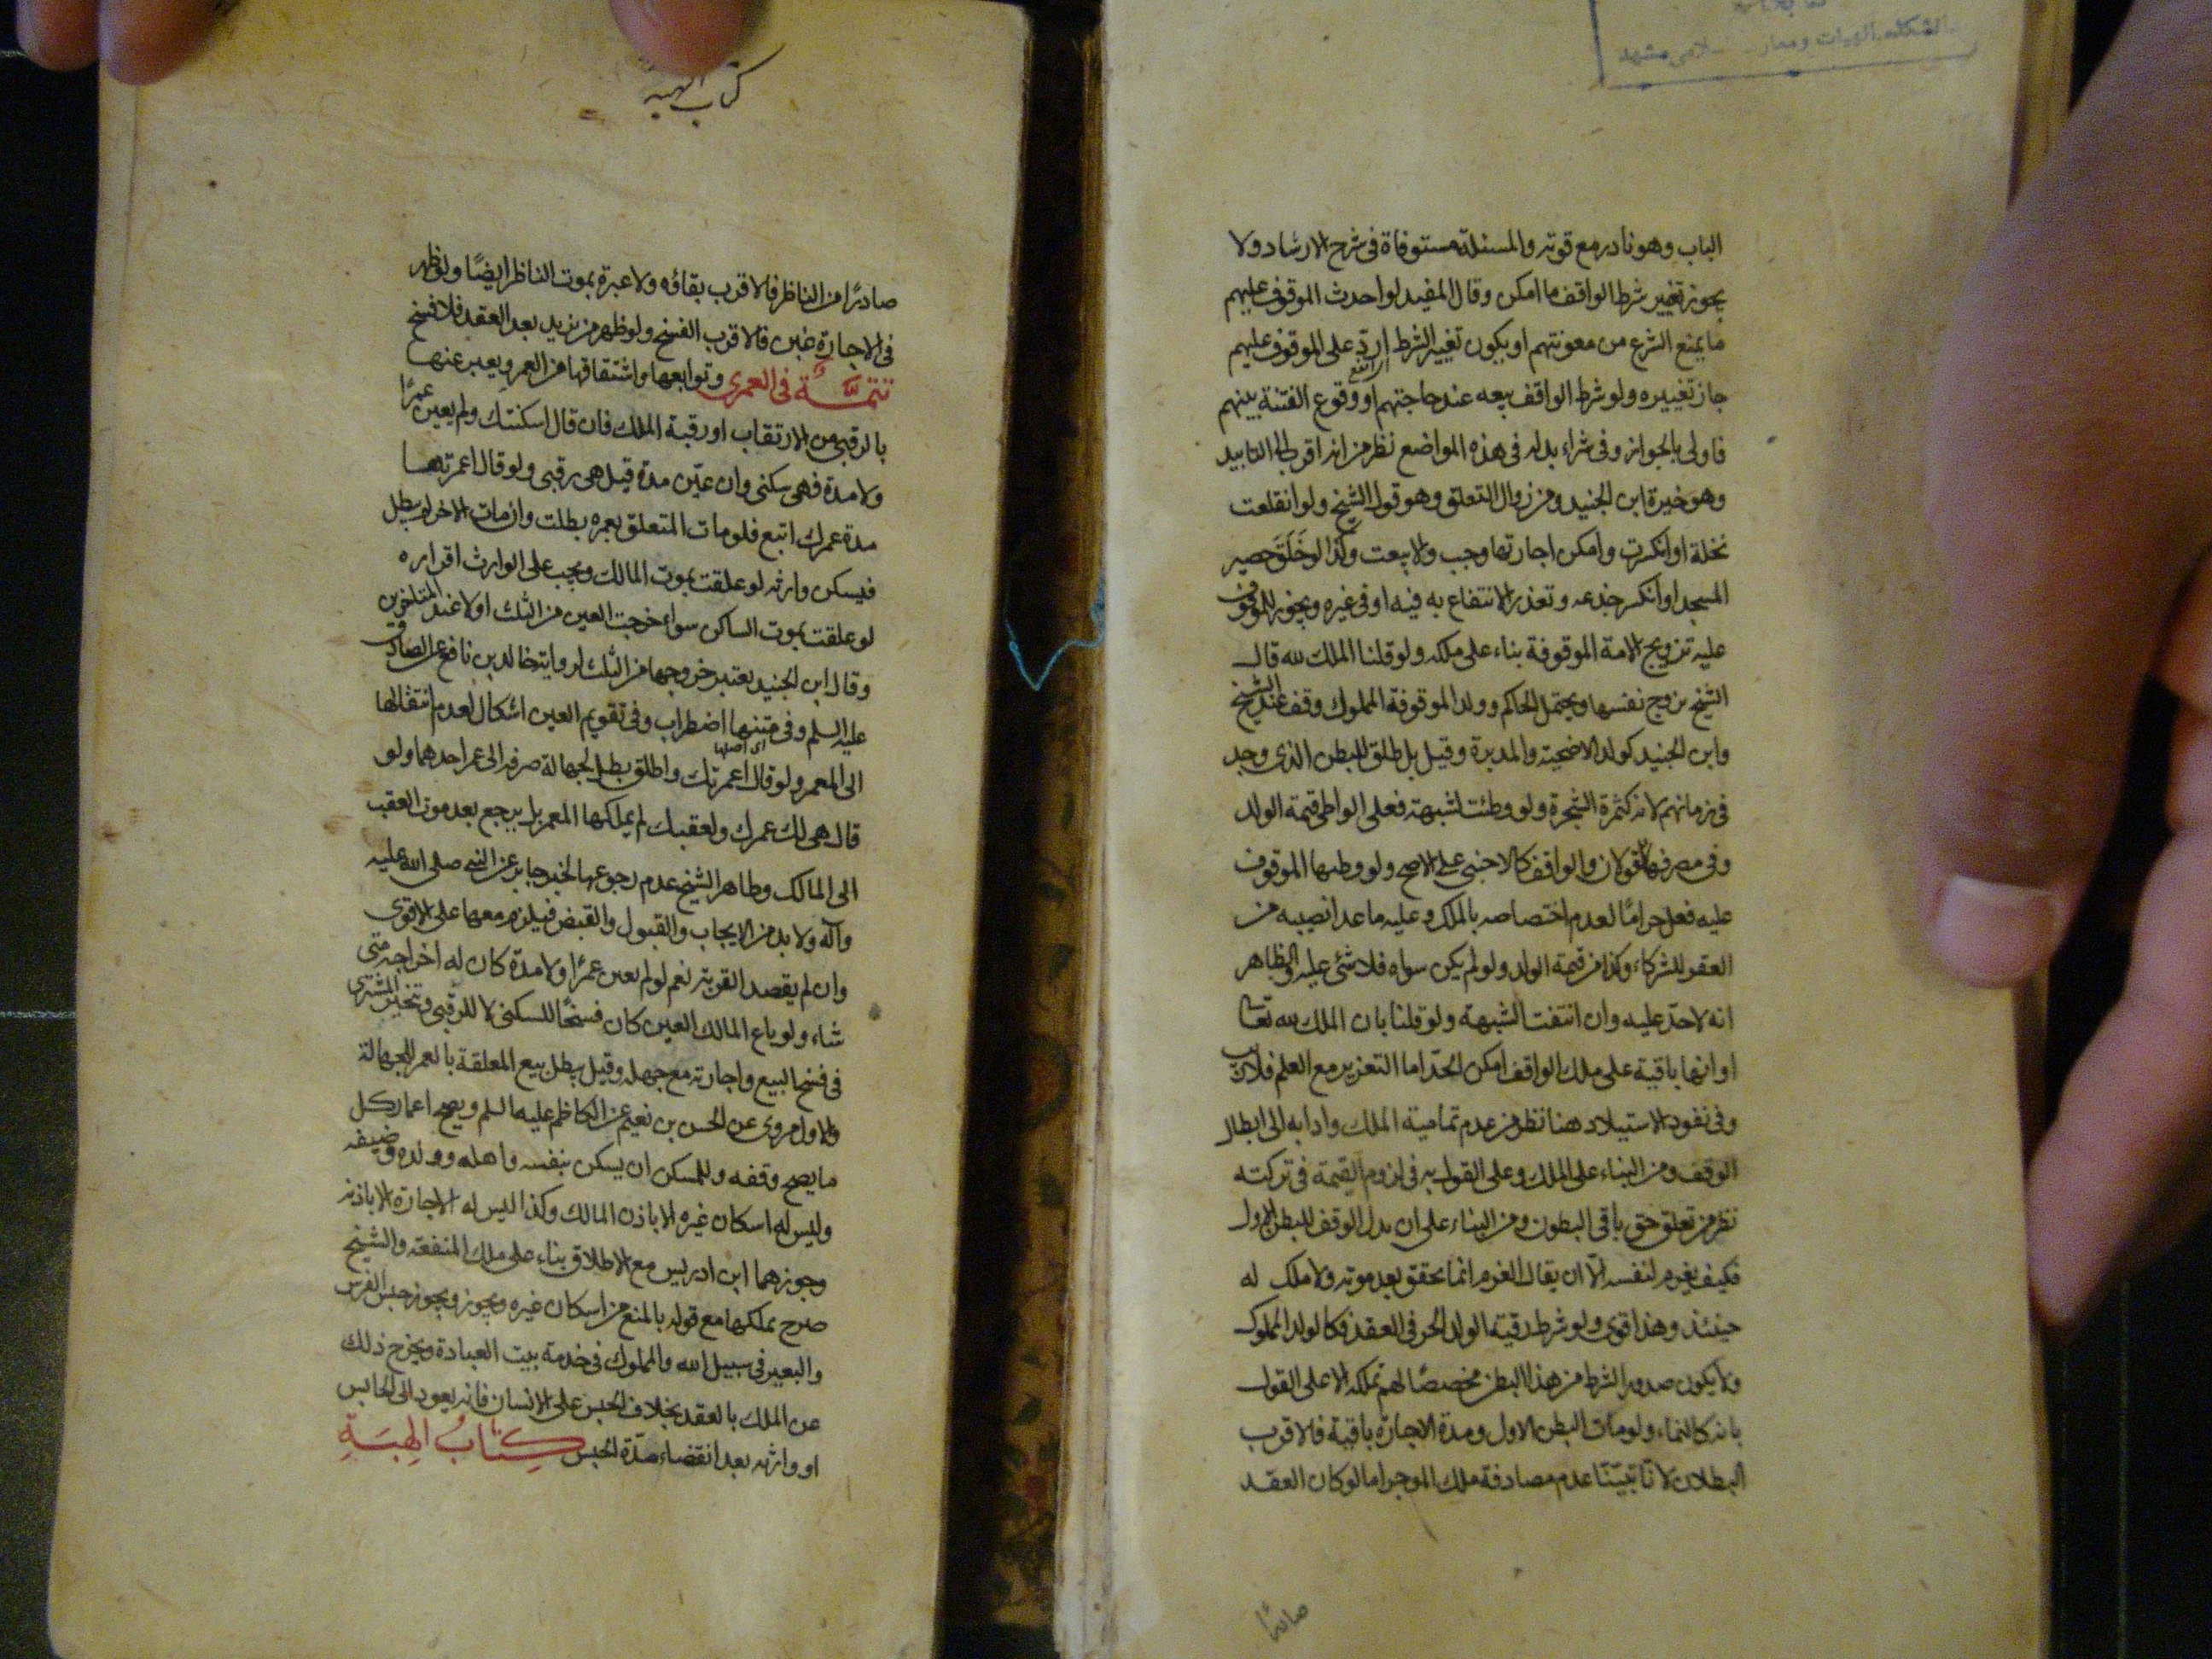 الباب وهو نادر مع قوته والمسئلة مستوفاة فى شرح الارشاد ولا
يجوز تغيير شرط الواقف ما امكن وقال المفيد لو احدث الموقوف عليهم
ما يمنع الشرع من معونتهم او يكون تغيير الشرط ارد على الموقوف عليهم
جاز تغييره ولو شرط الواقف بيعه عند حاجتهم او وقوع الفتنة بينهم
فاولى بالجواز وفى شراء بدله فى هذه المواضع نظر من انه اقرب الى التابيد
وهو خيرة ابن الجنيد ومن زوال التعلق وهو قول الشيخ ولو انقلعت
نخلة او انكسرت وامكن اجارتها وجب والا بيعت وكذا لو خَلَقَ حصير
المسجد او انكسر جذعه وتعذر الانتفاع به فيه او فى غيره ويجوز للموقوف
عليه تزويج الامة الموقوفة بناء على ملكه ولو قلنا الملك لله قال
الشيخ تزوج نفسها ويحتمل الحاكم وولد الموقوفة المملوك وقف عند الشيخ
وابن الجنيد كولد الاضحية والمدبرة وقيل بل طلق للبطن الذى وجد
فى زمانهم لانه كثمرة الشجرة ولو وطئت لشبهة فعلى الواطى قيمة الولد
وفى مصرفها قولان والواقف كالاجنبى على الاصح ولو وطئها الموقوف
عليه فعل حراما لعدم اختصاصه بالملك وعليه ما عدا نصيبه من
العقر للشركاء وكذا من قيمة الولد ولو لم يكن سواه فلا شئ عليه والظاهر
انه لا حد عليه وان انتفت الشبهة ولو قلنا بان الملك لله تعا
او انها باقية على ملك الواقف امكن الحد اما التعزير مع العلم فلا ريب
وفى نفوذ الاستيلاد هنا نظر من عدم تمامية الملك وادايه الى ابطال
الوقف ومن البناء على الملك وعلى القول به فى لزوم القيمة فى تركته
نظر من تعلق حق باقى البطون ومن البناء على ان بدل الوقف للبطن الاول
فكيف يغرم لنفسه الا ان يقال الغرم انما يحقق بعد موته ولا ملك له
حينئذ وهذا اقوى ولو شرط رقية الولد الحر فى العقد فكالولد المملوك
ولا يكون صدور الشرط من هذا البطن مخصصا لهم تملكه الا على القول
بانه كالنماء ولو مات البطن الاول ومدة الاجارة باقية فالاقرب
البطلان لانا تبينا عدم مصادفة ملك الموجر اما لو كان العقد
صادرًا
كتاب الهبه
صادرًا من الناظر فالاقرب بقاؤه ولا عبرة بموت الناظر ايضًا ولو ظهر
فى الاجارة غبن فالاقرب الفسخ ولو ظهر من يزيد بعد العقد فلا فسخ
تتمَّة فى العمرى وتوابعها واشتقاقها من العمر ويعبر عنها
بالرقبى من الارتقاب او رقبة الملك فان قال اسكنتك ولم يعين عمرًا
ولا مدة فهى سكنى وان عيّن مدة قيل هى رقبى ولو قال اعمرتها
مدة عمرك اتبع فلو مات المتعلق بعمره بطلت وان مات الاخر لم يبطل
فيسكن وارثه لو علقت بموت المالك ويجب على الوارث اقراره
لو علقت بموت الساكن سواء خرجت العين من الثلث او لا عند المتاخرين
وقال ابن الجنيد يعتبر خروجها من الثلث لرواية خالد بن نافع عن الصادق
عليه السلم وفى متنها اضطراب وفى تقويم العين اشكال لعدم انتقالها
الى المعمر ولو قال اعمرتك واطلق بطل لجهالة صرفه الى عمر احدهما ولو
قال هى لك عمرك ولعقبك لم يملكها المعمر بل يرجع بعد موت العقب
الى المالك وظاهر الشيخ عدم رجوعها لخبر جابر عن النبى صلى الله عليه
وآله ولا بد من الايجاب والقبول والقبض فيلزم معها على الاقوى
وان لم يقصد القربة نعم لو لم يعين عمرًا ولا مدة كان له اخراجه متى
شاء ولو باع المالك العين كان فسخًا للسكنى لا للرقبى ويتخير المشترى
فى فسخ البيع واجازته مع جهله وقيل يبطل بيع المعلقة بالعمر للجهالة
والاول مروى عن الحسن بن نعيم عن الكاظم عليه السلم ويصح اعمار كل
ما يصح وقفه وللمسكن ان يسكن بنفسه واهله وولده وضيفه
وليس له اسكان غيره الا باذن المالك وكذا ليس له الاجارة الا باذنه
وجوزهما ابن ادريس مع الاطلاق بناء على ملك المنفعة والشيخ
صرح بملكها مع قوله بالمنع من اسكان غيره ويجوز ويجوز حبس الفرس
والبعير فى سبيل الله والمملوك فى خدمة بيت العبادة ويخرج ذلك
عن الملك بالعقد بخلاف الحبس على الانسان فانه يعود الى الحابس
او وارثه بعد انقضاء مدّة الحبس كِتَابُ الهِبَةِ